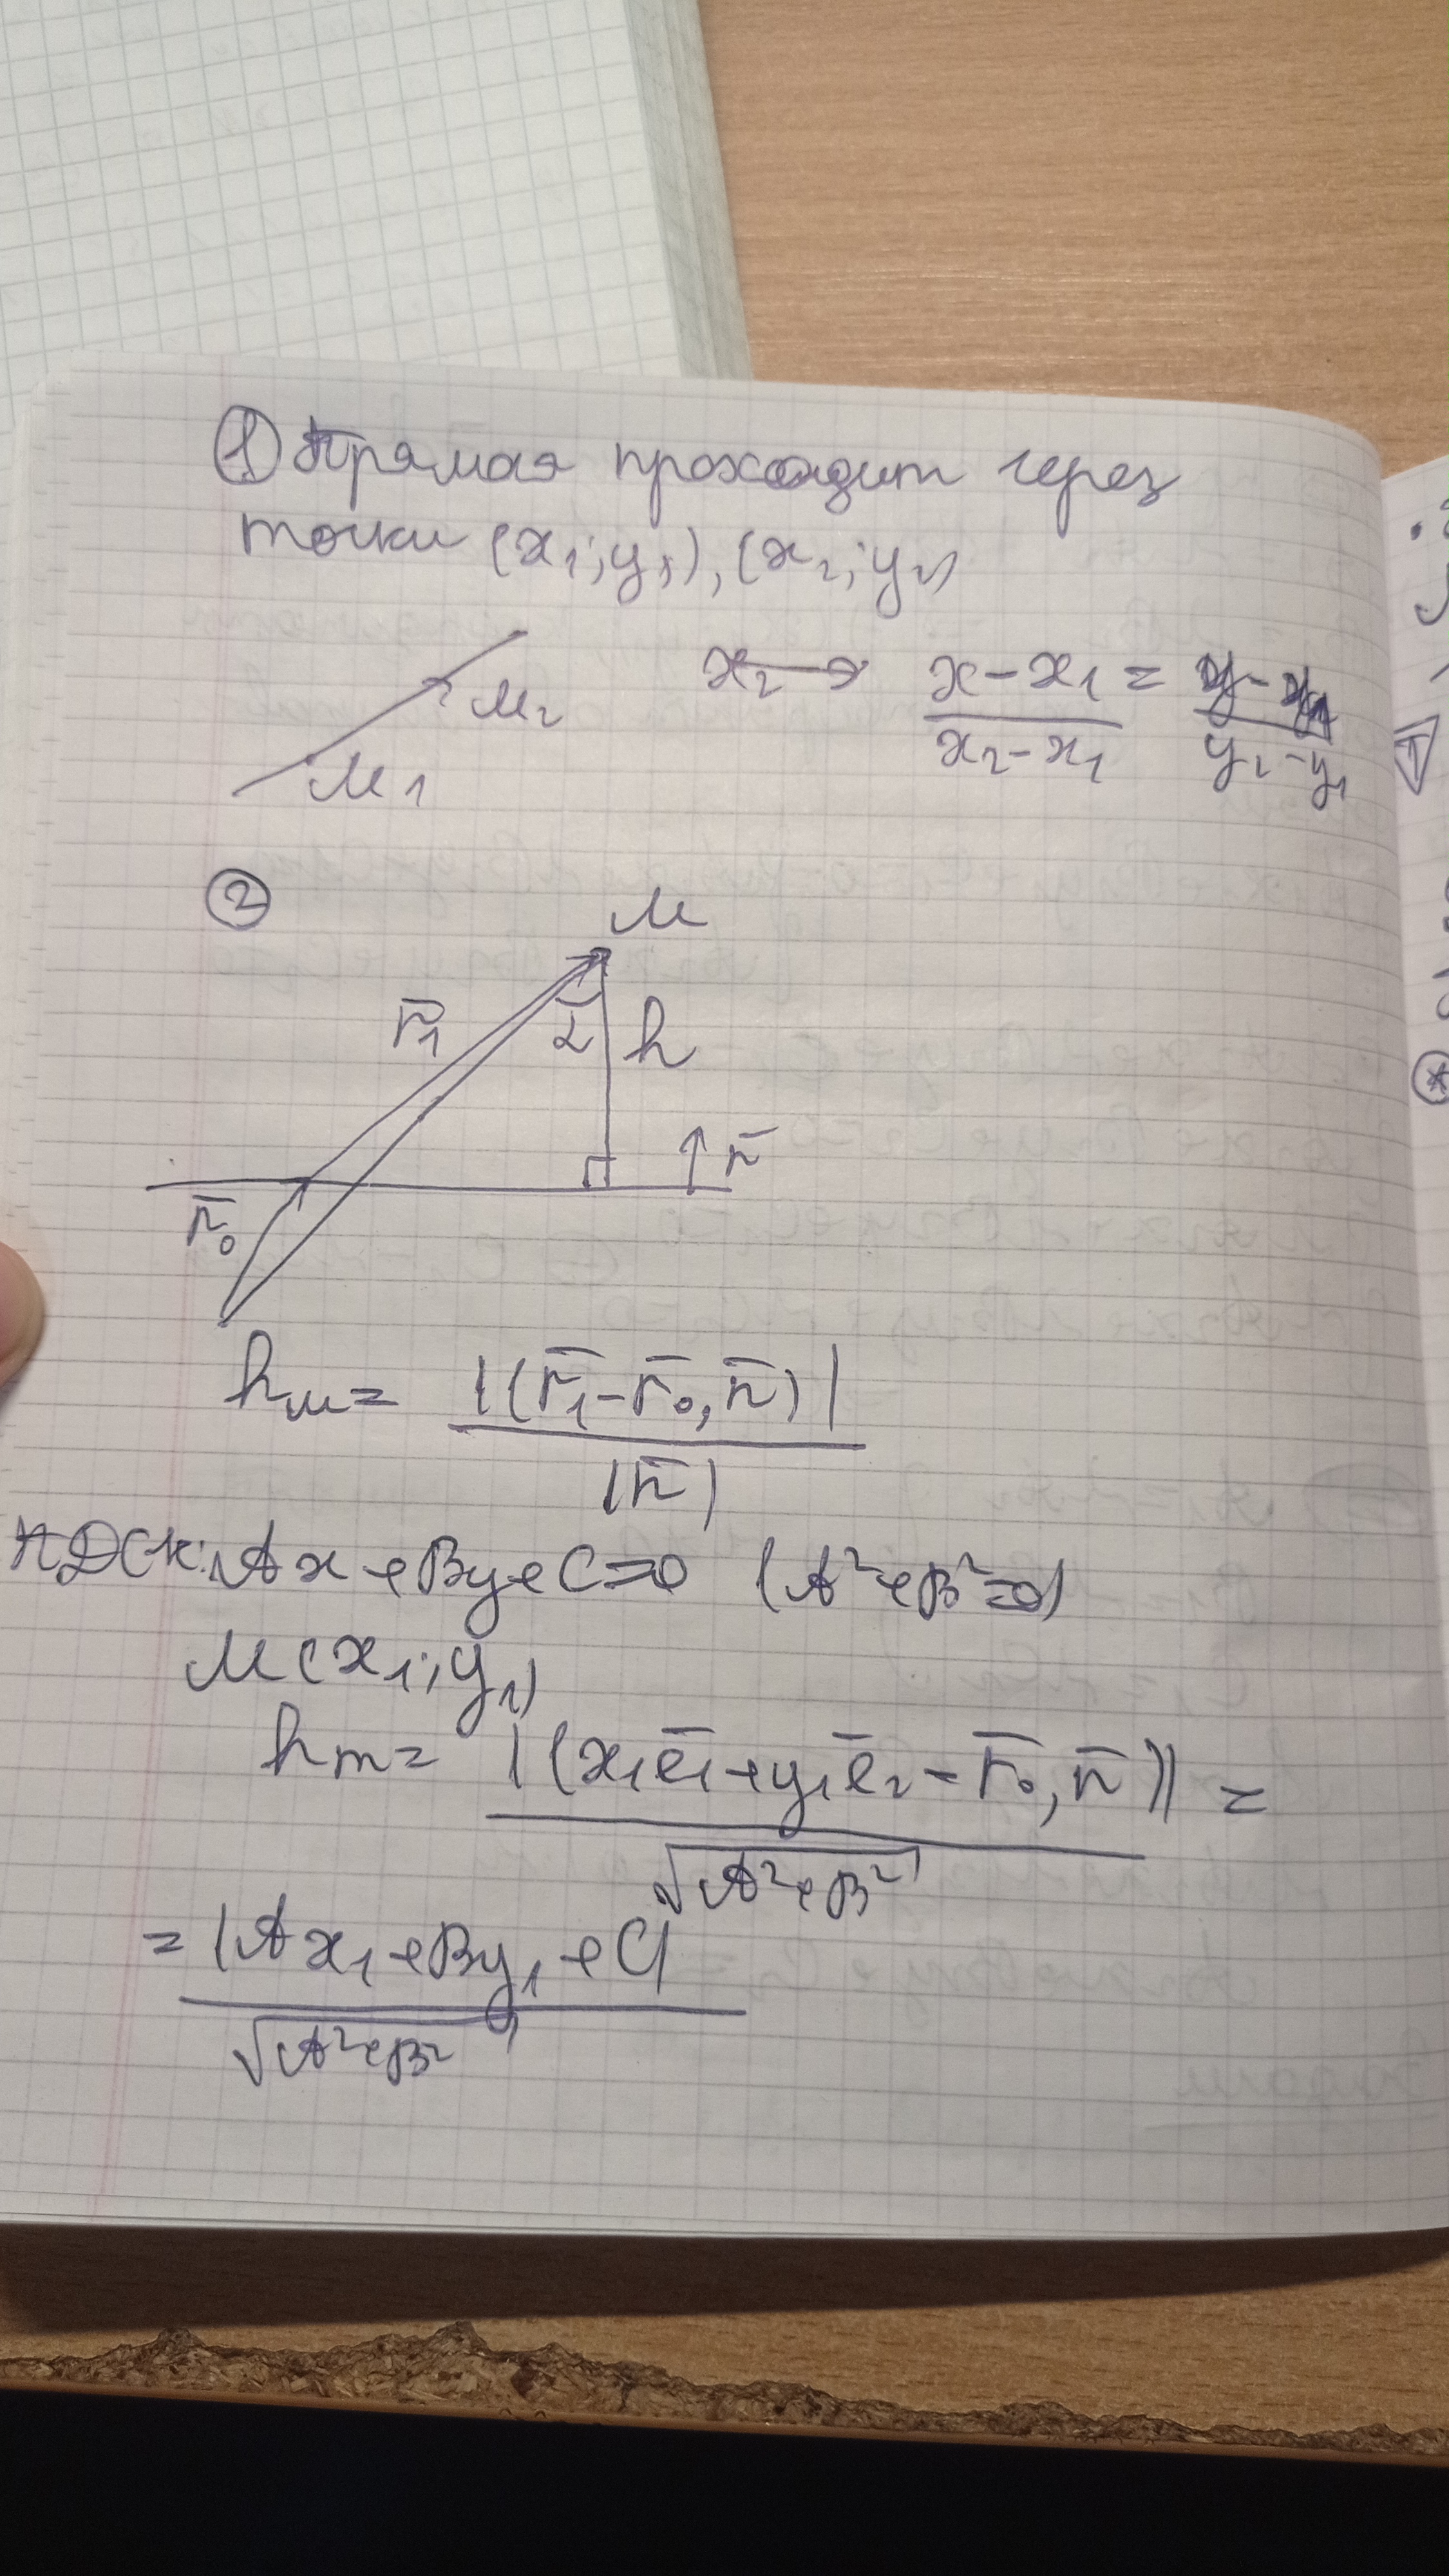 ① Прямая проходит через
точки (x₁; y₁), (x₂; y₂)
M₂
M₁
x₂ → (x - x₁)/(x₂ - x₁) = (y - y₁)/(y₂ - y₁)
②
M
r̄₁
α
h
n̄
r̄₀
hₘ = |(r̄₁ - r̄₀, n̄)| / |n̄|
ПДСК: Ax + By + C = 0 (A² + B² = 0)
M(x₁; y₁)
hₘ = |(x₁ē₁ + y₁ē₂ - r̄₀, n̄)| / √(A² + B²) =
= |Ax₁ + By₁ + C| / √(A² + B²)